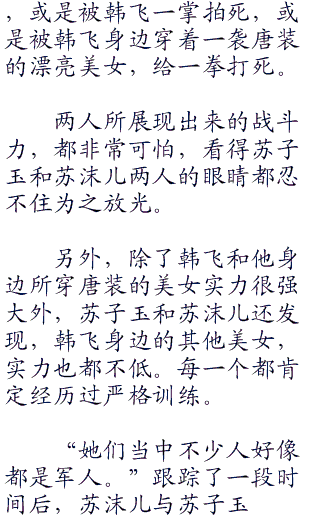 ，或是被韩飞一掌拍死，或
是被韩飞身边穿着一袭唐装
的漂亮美女，给一拳打死。
两人所展现出来的战斗
力，都非常可怕，看得苏子
玉和苏沫儿两人的眼睛都忍
不住为之放光。
另外，除了韩飞和他身
边所穿唐装的美女实力很强
大外，苏子玉和苏沫儿还发
现，韩飞身边的其他美女，
实力也都不低。每一个都肯
定经历过严格训练。
“她们当中不少人好像
都是军人。”跟踪了一段时
间后，苏沫儿与苏子玉